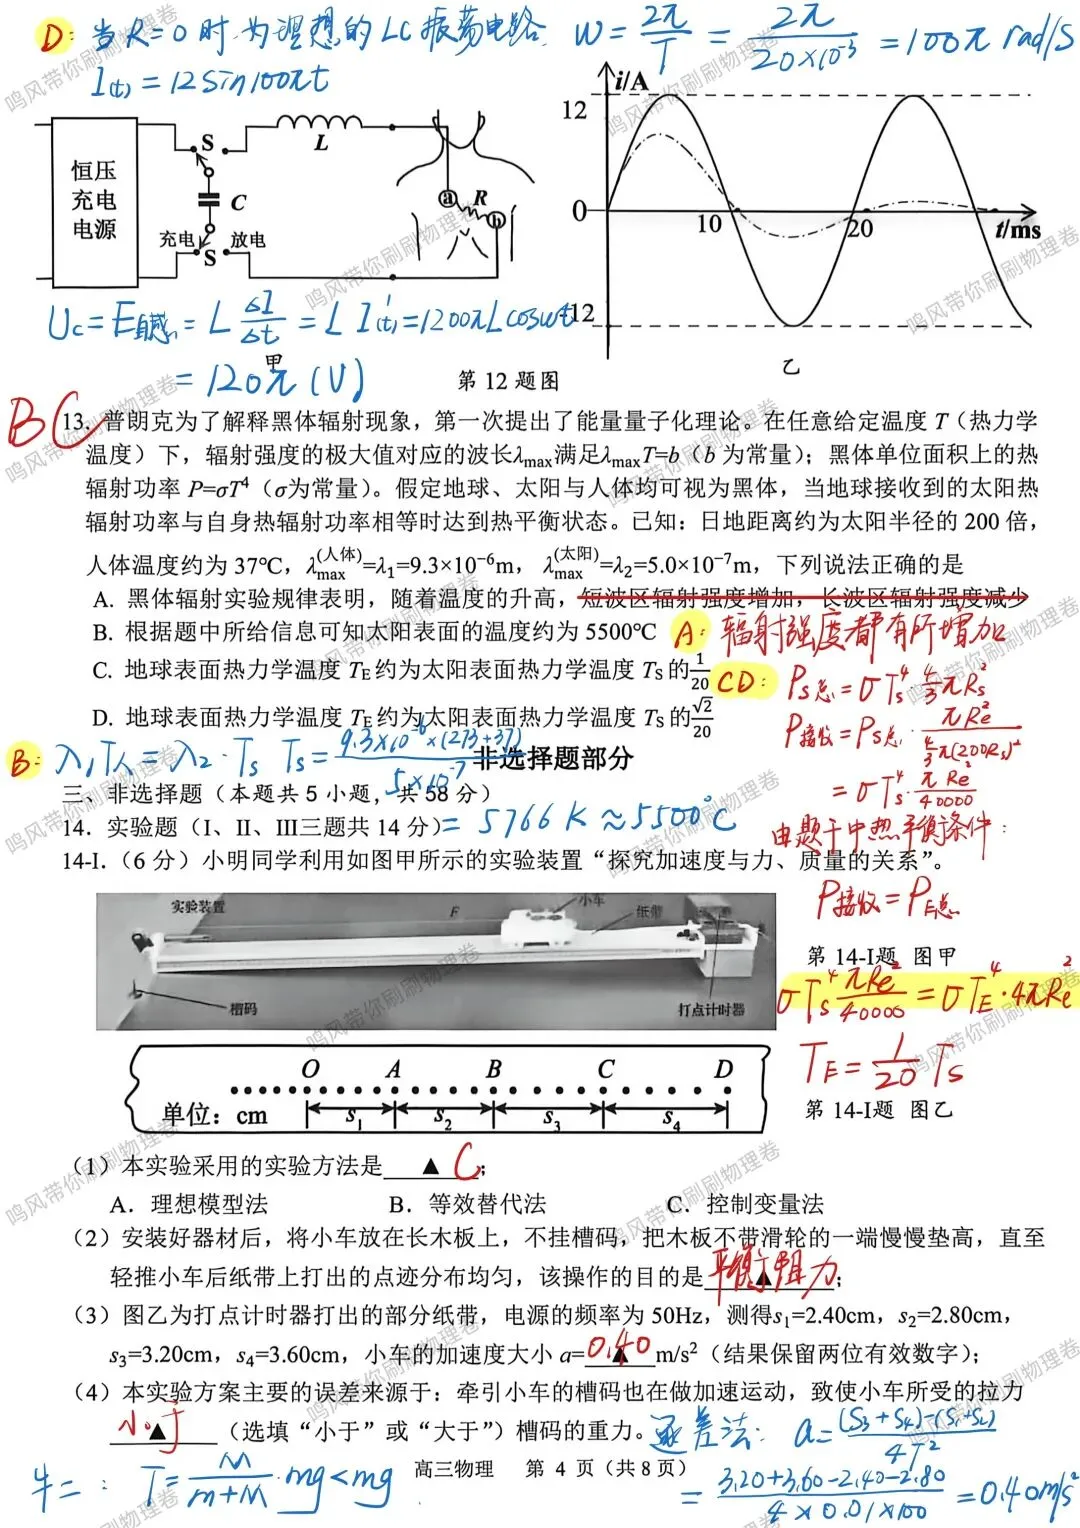 D: 当R=0时.为理想的LC振荡电路. W=2π/T=2π/20×10⁻³=100π rad/s
I(t)=12sin100πt
i/A
12
0
10
20
t/ms
-12
乙
恒压
充电
电源
S
C
充电
放电
S
L
a
R
b
甲
Uc=E自感=LΔI/Δt=LI'(t)=1200πLcosωt
=120π(V)
第12题图
BC
13. 普朗克为了解释黑体辐射现象，第一次提出了能量量子化理论。在任意给定温度T（热力学
温度）下，辐射强度的极大值对应的波长λmax满足λmaxT=b（b为常量）；黑体单位面积上的热
辐射功率P=σT⁴（σ为常量）。假定地球、太阳与人体均可视为黑体，当地球接收到的太阳热
辐射功率与自身热辐射功率相等时达到热平衡状态。已知：日地距离约为太阳半径的200倍，
人体温度约为37℃，λmax(人体)=λ₁=9.3×10⁻⁶m，λmax(太阳)=λ₂=5.0×10⁻⁷m，下列说法正确的是
A. 黑体辐射实验规律表明，随着温度的升高，短波区辐射强度增加，长波区辐射强度减少
B. 根据题中所给信息可知太阳表面的温度约为5500℃
A: 辐射强度都有所增加
C. 地球表面热力学温度TE约为太阳表面热力学温度TS的1/20
CD: PS总=σTs⁴·4/3πRs²
D. 地球表面热力学温度TE约为太阳表面热力学温度TS的√2/20
P接收=PS总·πRe²/4/3π(200Rs)²
=σTs⁴·πRe²/40000
B: λ₁T人=λ₂·Ts Ts=9.3×10⁻⁶×(273+37)/5×10⁻⁷
=5766K≈5500℃
由题干中热平衡条件:
P接收=PE总
σTs⁴πRe²/40000=σTE⁴·4πRe²
TE=1/20Ts
非选择题部分
三、非选择题（本题共5小题，共58分）
14. 实验题（I、II、III三题共14分）
14-I.（6分）小明同学利用如图甲所示的实验装置“探究加速度与力、质量的关系”。
实验装置
F
小车
纸带
槽码
打点计时器
第14-I题 图甲
O A B C D
单位：cm
s₁ s₂ s₃ s₄
第14-I题 图乙
（1）本实验采用的实验方法是▲C；
A. 理想模型法 B. 等效替代法 C. 控制变量法
（2）安装好器材后，将小车放在长木板上，不挂槽码，把木板不带滑轮的一端慢慢垫高，直至
轻推小车后纸带上打出的点迹分布均匀，该操作的目的是▲平衡阻力；
（3）图乙为打点计时器打出的部分纸带，电源的频率为50Hz，测得s₁=2.40cm，s₂=2.80cm，
s₃=3.20cm，s₄=3.60cm，小车的加速度大小a=▲0.40m/s²（结果保留两位有效数字）；
（4）本实验方案主要的误差来源于：牵引小车的槽码也在做加速运动，致使小车所受的拉力
▲小于（选填“小于”或“大于”）槽码的重力。
逐差法: a=(S₃+S₄)-(S₁+S₂)/4T²
=3.20+3.60-2.40-2.80/4×0.01×100=0.40m/s²
牛二: T=M/m+M·mg<mg
高三物理 第4页（共8页）
鸣风带你刷刷物理卷